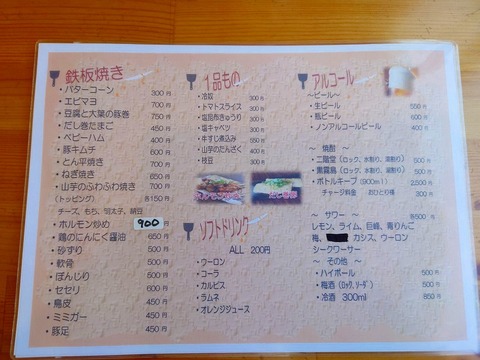 鉄板焼き
・バターコーン 300円
・エビマヨ 700円
・豆腐と大葉の豚巻 750円
・だし巻たまご 450円
・ベビーハム 400円
・豚キムチ 600円
・とん平焼き 750円
・ねぎ焼き 650円
・山芋のふわふわ焼き 700円
(トッピング) 各150円
チーズ、もち、明太子、納豆
・ホルモン炒め 900円
・鶏のにんにく醤油 650円
・砂ずり 500円
・軟骨 500円
・ぼんじり 500円
・セセリ 600円
・鳥皮 450円
・ミミガー 450円
・豚足 450円
1品もの
・冷奴
・トマトスライス 300円
・塩昆布きゅうり 300円
・塩キャベツ 300円
・牛すじ煮込み 550円
・山芋のたんざく 400円
・枝豆
ソフトドリンク
ALL 200円
・ウーロン
・コーラ
・カルピス
・ラムネ
・オレンジジュース
アルコール
～ビール～
・生ビール 550円
・瓶ビール 600円
・ノンアルコールビール 400円
～ 焼酎 ～
・二階堂(ロック、水割り、湯割り) 500円
・黒霧島(ロック、水割り、湯割り) 500円
・ボトルキープ(900ml) 2,500円
チャージ料金 おひとり様 300円
～ サワー ～ 各500円
レモン、ライム、巨峰、青りんご
梅、カシス、ウーロン
シークワーサー
～ その他 ～
・ハイボール 500円
・梅酒(ロック、ソーダ) 500円
・冷酒 300ml 850円